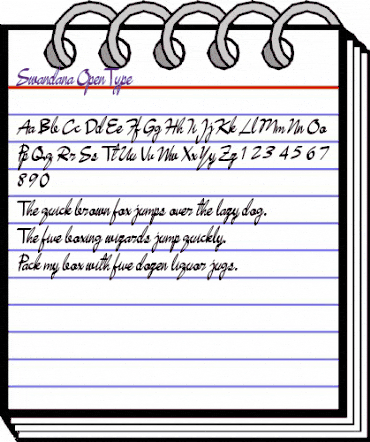 Swandana OpenType
Aa Bb Cc Dd Ee Ff Gg Hh Ii Jj Kk Ll Mm Nn Oo
Pp Qq Rr Ss Tt Uu Vv Ww Xx Yy Zz 1 2 3 4 5 6 7
8 9 0
The quick brown fox jumps over the lazy dog.
The five boxing wizards jump quickly.
Pack my box with five dozen liquor jugs.